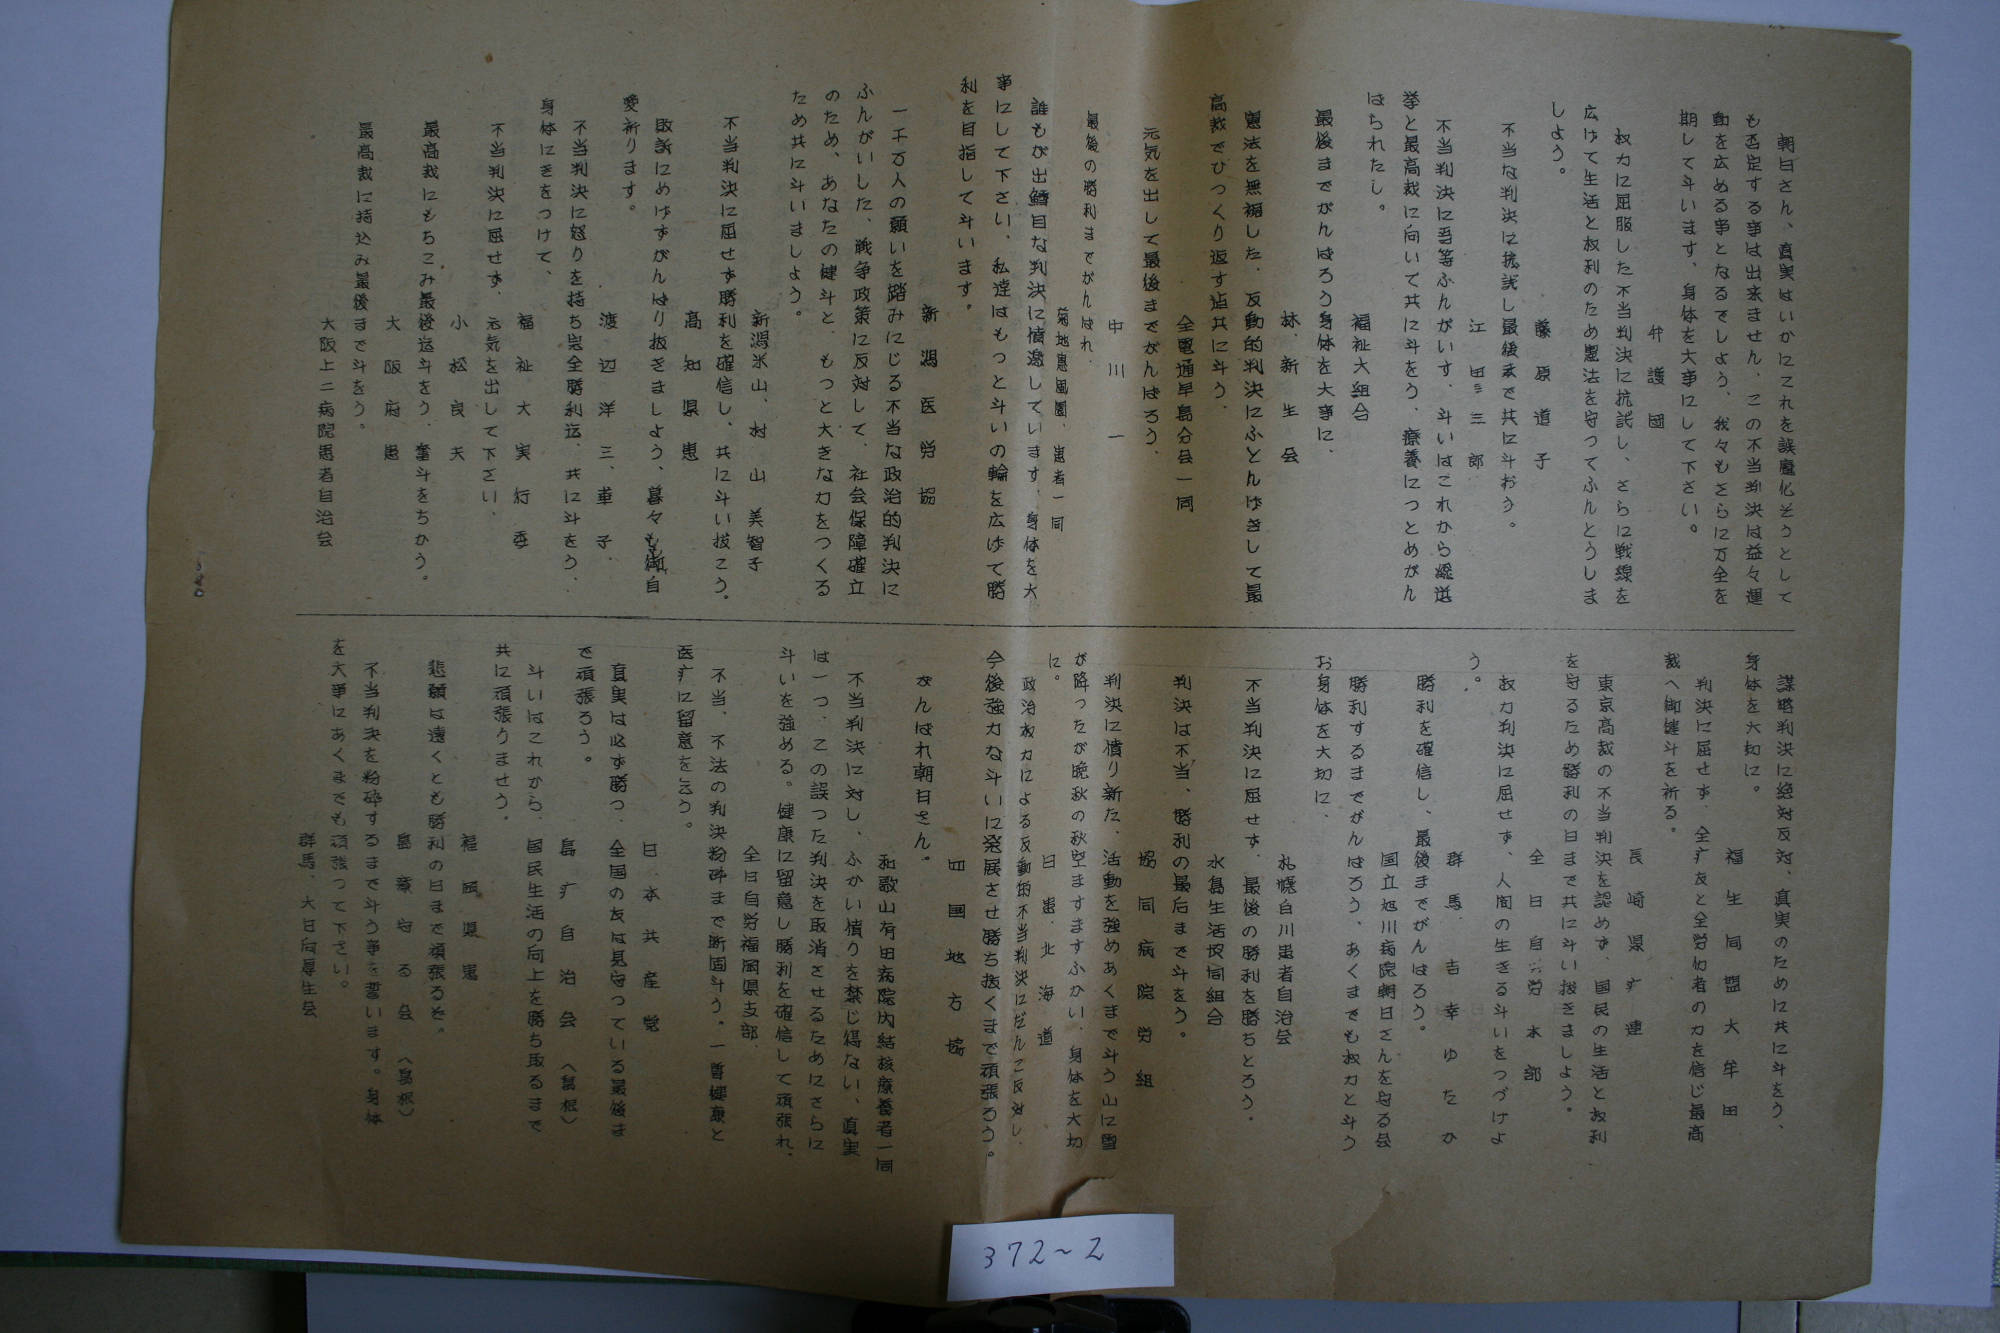 朝日さん、真実はいかにこれを誤魔化そうとして
も否定する事は出来ません、この不当判決は益々運
動を広める事となるでしよう、我々もさらに万全を
期して斗います、身体を大事にして下さい。
弁護団
权力に屈服した不当判決に抗試し、さらに戦線を
広げて生活と权利のため憲法を守つてふんとうしま
しよう。
藤原道子
不当な判決に抗試し最後まで共に斗おう。
江田三郎
不当判決に吾等ふんがいす、斗いはこれから総選
挙と最高裁に向いて共に斗をう、療養につとめがん
ばられたし。
福祉大組合
最後までがんばろう身体を大事に、
林、新生会
憲法を無視した、反動的判決にふとんけきして最
高裁でひつくり返す迠共に斗う、
全電通早島分会一同
元気を出して最後までがんばろう、
中川一
最後の勝利までがんばれ、
菊地恵風園、患者一同
誰もが出鱈目な判決に憤激しています、身体を大
事にして下さい、私達はもつと斗いの輪を広げて勝
利を目指して斗います。
新潟医労協
一千万人の願いを踏みにじる不当な政治的判決に
ふんがいした、戦争政策に反対して、社会保障確立
のため、あなたの健斗と、もつと大きな力をつくる
ため共に斗いましよう。
新潟米山、村山美智子
不当判決に屈せず勝利を確信し、共に斗い抜こう。
高知県患
敗訴にめげずがんばり抜きましよう、暮々も御自
愛祈ります。
渡辺洋三、華子、
不当判決に怒りを持ち完全勝利迄、共に斗をう、
身体にきをつけて、
福祉大実行委
不当判決に屈せず、元気を出して下さい、
小松良夫
最高裁にもちこみ最後迄斗をう、奮斗をちかう。
大阪府患
最高裁に持込み最後まで斗をう。
大阪上二病院患者自治会
謀略判決に絶対反対、真実のために共に斗をう、
身体を大切に。
福生同盟大牟田
判決に屈せず、全疒友と全労仂者の力を信じ最高
裁へ御健斗を祈る。
長崎県疒連
東京高裁の不当判決を認めず、国民の生活と权利
を守るため勝利の日まで共に斗い抜きましよう。
全日自労本部
权力判決に屈せず、人间の生きる斗いをつづけよ
う。
群馬、吉幸ゆたか
勝利を確信し、最後までがんばろう。
国立旭川病院朝日さんを守る会
勝利するまでがんばろう、あくまでも权力と斗う
お身体を大切に、
札幌白川患者自治会
不当判決に屈せず、最後の勝利を勝ちとろう。
水島生活協同組合
判決は不当、勝利の最后まで斗をう。
協同病院労組
判決に憤り新た、活動を強めあくまで斗う山に雪
が降つたが晩秋の秋空ますますふかい、身体を大切
に。
日患、北海道
政治权力による反動的不当判決にだんこ反対し、
今後強力な斗いに発展させ勝ち抜くまで頑張ろう。
四国地方協
がんばれ朝日さん。
和歌山有田病院内結核療養者一同
不当判決に対し、ふかい憤りを禁じ得ない、真実
は一つ、この誤つた判決を取消させるためにさらに
斗いを強める。健康に留意し勝利を確信して頑張れ、
全日自労福岡県支部、
不当、不法の判決粉砕まで断固斗う。一層健康と
医疒に留意をこう。
日本共産党
真実は必ず勝つ、全国の友は見守つている最後ま
で頑張ろう。
島疒自治会 (島根)
斗いはこれから、国民生活の向上を勝ち取るまで
共に頑張りませう。
福岡県患
悲願は遠くとも勝利の日まで頑張るぞ。
島療守る会 (島根)
不当判決を粉砕するまで斗う事を誓います。身体
を大事にあくまでも頑張つて下さい。
群馬、大日向厚生会
372~2